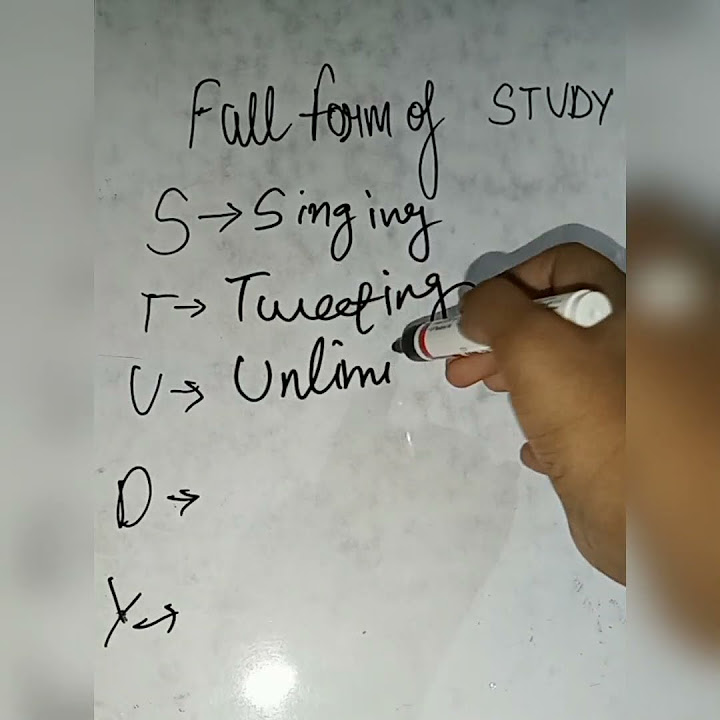 Fall form of STUDY
S → Singing
T → Tweeting
U → Unlimi
D →
Y →